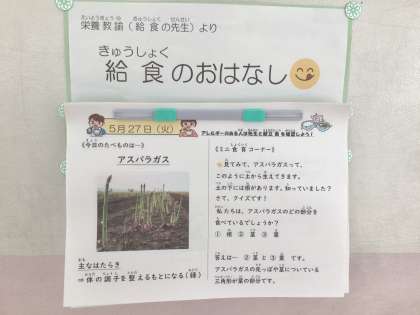 栄養教諭（給食の先生）より
給食のおはなし
5月27日（火）
アレルギーのある人は先生と献立表を確認しよう！
《今日のたべものは…》
アスパラガス
主なはたらき
⇒体の調子を整えるもとになる（緑）
《ミニ食育コーナー》
見てみて、アスパラガスって、
このように土から生えてきます。
土の下には根があります。知っていました？
さて、クイズです！
私たちは、アスパラガスのどの部分を
食べているでしょうか？
① 根 ② 茎 ③ 葉
答えは… ② 茎 と ③ 葉 です。
アスパラガスの先っぽや茎についている
三角形が葉の部分です。